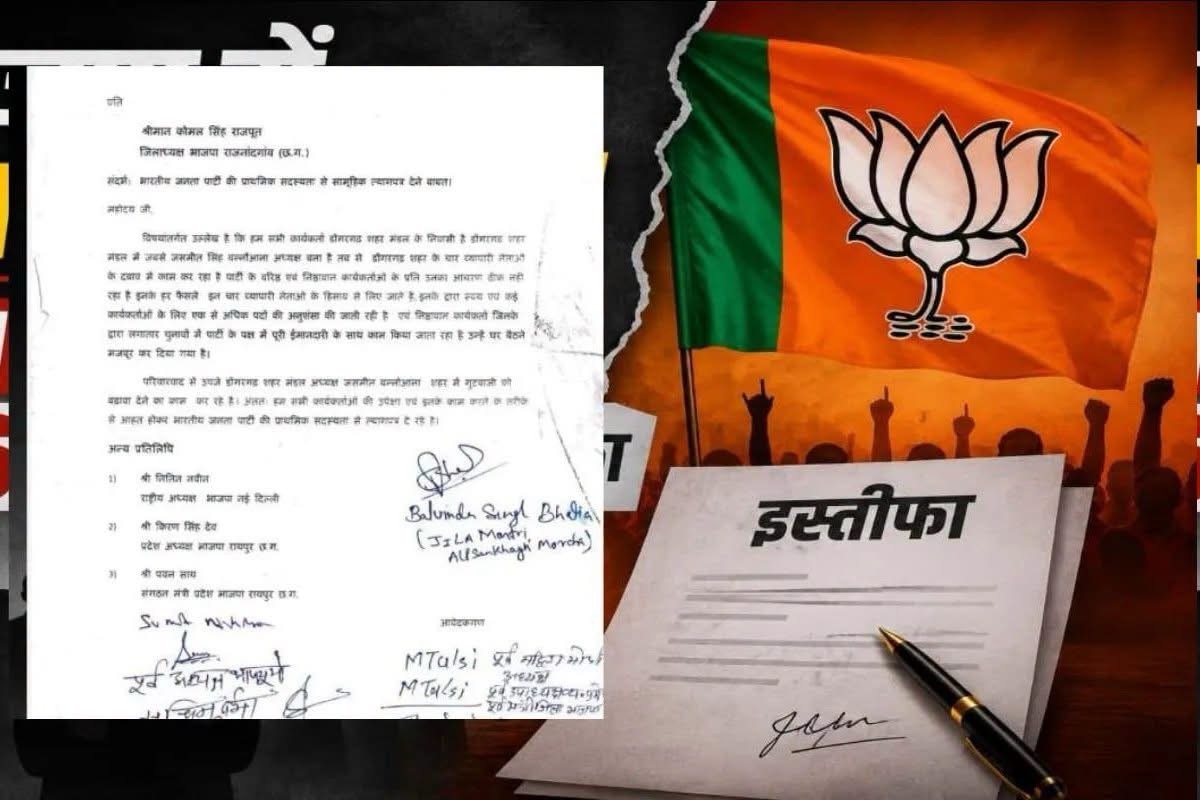 प्रति
श्रीमान कोमल सिंह राजपूत
जिलाध्यक्ष भाजपा राजनांदगांव (छ.ग.)
संदर्भः भारतीय जनता पार्टी की प्राथमिक सदस्यता से सामूहिक त्यागपत्र देने बाबत।
महोदय जी,
विषयांतर्गत उल्लेख है कि हम सभी कार्यकर्ता डोंगरगढ़ शहर मंडल के निवासी है डोंगरगढ़ शहर
मंडल में जबसे जसमीत सिंह बन्नोआना अध्यक्ष बना है तब से डोंगरगढ़ शहर के चार व्यापारी नेताओं
के दवाव में काम कर रहा है पार्टी के वरिष्ठ एवं निष्ठावान कार्यकर्ताओं के प्रति उनका आचरण ठीक नही
रहा है इनके हर फैसले इन चार व्यापारी नेताओं के हिसाब से लिए जाते है, इनके द्वारा स्वयं एवं कई
कार्यकर्ताओं के लिए एक से अधिक पदों की अनुशंसा की जाती रही है एवं निष्ठावान कार्यकर्ता जिनके
द्वारा लगातार चुनावों में पार्टी के पक्ष में पूरी ईमानदारी के साथ काम किया जाता रहा है उन्हें घर बैठने
मजबूर कर दिया गया है।
परिवारवाद से उपजे डोंगरगढ़ शहर मंडल अध्यक्ष जसमीत बन्नोआना शहर में गुटबाजी को
बढ़ावा देने का काम कर रहे है। अंततः हम सभी कार्यकर्ताओं की उपेक्षा एवं इनके काम करने के तरीके
से आहत होकर भारतीय जनता पार्टी की प्राथमिक सदस्यता से त्यागपत्र दे रहे है।
अन्य प्रतिलिपि
1) श्री नितिन नवीन
राष्ट्रीय अध्यक्ष भाजपा नई दिल्ली
2) श्री किरण सिंह देव
प्रदेश अध्यक्ष भाजपा रायपुर छ.ग.
3) श्री पवन साय
संगठन मंत्री प्रदेश भाजपा रायपुर छ.ग.
Balvinder Singh Bhatia
(JILA Mantri
Alpsankhagh Morcha)
आवेदकगण
MTulsi पूर्व महिला मोर्चा
अध्यक्ष
MTulsi पूर्व उपाध्यक्ष
पूर्व मंत्री जिला भाजपा
पूर्व अध्यक्ष भाजयुमो
इस्तीफा